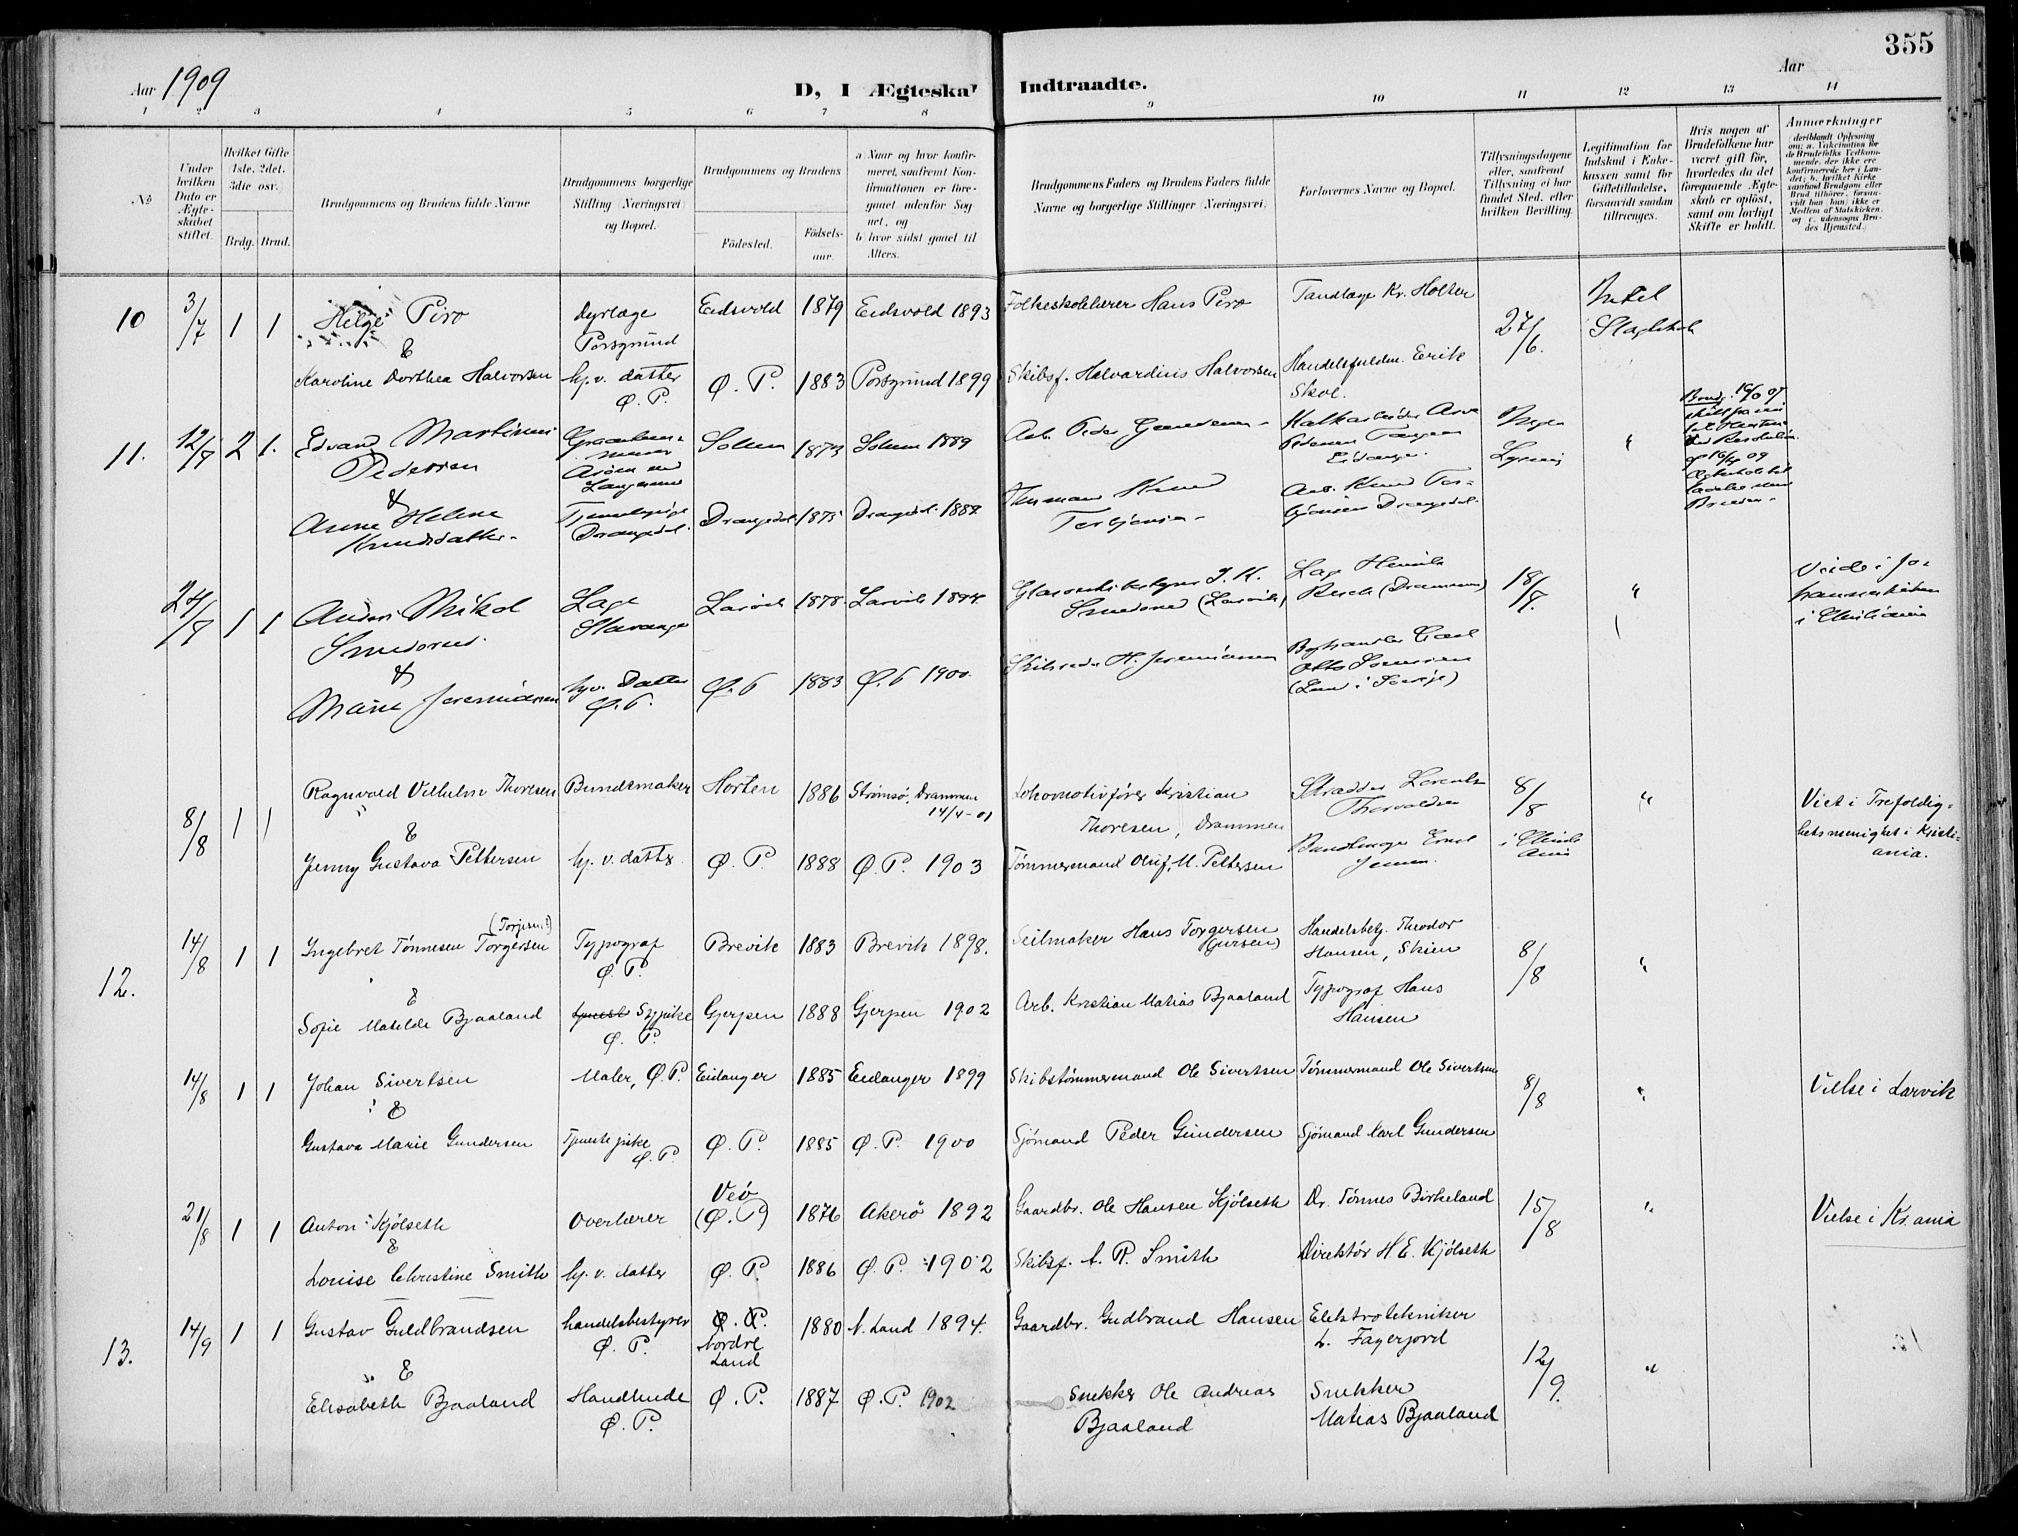 355
Aar 1909
D, I Ægteskab Indtraadte.
Aar
1 2 3 4 5 6 7 8 9 10 11 12 13 14
No
Under hvilken Dato er Ægteskabet stiftet.
Hvilket Gifte 1ste, 2det, 3die osv.
Brdg. Brud.
Brudgommens og Brudens fulde Navne
Brudgommens borgerlige Stilling (Næringsvei) og Bopæl.
Brudgommens og Brudens
Fødested.
Fødselsaar.
a) Naar og hvor konfirmeret, saafremt Konfirmationen er foregaaet udenfor Sognet, og
b) hvor sidst gaaet til Alters.
Brudgommens Faders og Brudens Faders fulde Navne og borgerlige Stillinger (Næringsvei).
Forlovernes Navne og Bopæl.
Tillysningsdagene eller, saafremt Tillysning ei har fundet Sted, efter hvilken Bevilling.
Legitimation for Indskud i Enkekassen samt for Giftetilladelse, forsaavidt saadan tiltrænges.
Hvis nogen af Brudefolkene har været gift før, hvorledes da det foregaaende Ægteskab er opløst, samt om lovligt Skifte er holdt.
Anmærkninger (deriblandt Oplysning om: a. Vakcination for de Brudefolks Vedkommende, der ikke ere konfirmerede her i Landet; b. hvilket Kirkesamfund Brudgom eller Brud tilhører, forsaavidt han (hun) ikke er Medlem af Statskirken, og c. udensogns Brudes Hjemsted.)
10 3/7 1 1 Helge Piro Dyrlæge Porsgrund Eidsvold 1879 Eidsvold 1893 Folkeskolelærer Hans Piro Tandlæge Kr. Holter 27/6.
&
Karoline Dorthea Halvorsen hj. v. datter Ø. P. Ø. P. 1883 Porsgrund 1899 Skibsf. Halvardinis Halvorsen Handelsfuldm. Erik Skol.
11. 12/7 2 1. Edvard Martinius Pedersen Solum 1873 Solum 1889 Arb. Peder Ingen Lysning "
&
Anne Helene Knudsdatter Tjenestepige Drangedal. Drangedal. 1875 Drangedal. Knud Arb. Knud Drangedal.
24/7 1 1 Anders Mikal Læge Stavanger Larvik 1878 Larvik (Larvik) Læge Henrik (Drammen) 18/7. " Viede i Johanneskirken i Christiania
&
Marie Jeremiassen hjv. Datter Ø. P. Ø. P 1883 Ø. P 1900. Skibsreder H. Jeremiassen Boghandler Carl Otto
8/8 1 1 Ragnvald Vilhelm Thoresen Bundtmaker Horten 1886 Strømsø, Drammen 14/4-01 Lokomotivfører Kristian Thoresen, Drammen Thorvaldsen 8/8 " Viet i Trefoldighetsmenighet i Kristiania.
&
Jenny Gustava Pettersen hj. v. datter Ø. P. 1888 Ø. P. 1903 Tømmermand Oluf M. Pettersen
12. 14/8 1 1 Ingebret Tønnesen Torgersen (Torjesen?) Typograf Ø. P. Brevik 1883 Brevik 1898. Seilmaker Hans Torgersen (Jursen) Handelsbetj. Theodor Hansen, Skien 8/8 "
&
Sofie Matilde Bjaaland Sypike Ø. P. Gjerpen 1888 Gjerpen 1902 Arb. Kristian Matias Bjaaland Typograf Hans Hansen
14/8 1 1 Johan Sivertsen Maler, Ø. P. Eidanger 1885 Eidanger 1899 Skibstømmermand Ole Sivertsen Tømmermand Ole Sivertsen 8/8 " Vielse i Larvik
&
Gustava Marie Gundersen Tjenestepike Ø. P. Ø. P. 1885 Ø. P. 1900 Sjømand Peder Gundersen Sjømand Karl Gundersen
21/8 1 1 Anton Kjølseth Overlærer Veø (Ø. P.) 1876 Akerø 1892 Gaardbr. Ole Hansen Kjølseth Dr. Tønnes Birkeland 15/8 " Vielse i Kr.ania
&
Louise Christine Smith hj. v. datter Ø. P. 1886 Ø. P. 1902 Skibsf. A. R. Smith Direktør H. E. Kjølseth
13. 14/9 1 1 Gustav Guldbrandsen Handelsbestyrer Ø. P. Ø. P. Nordre Land 1880 N. Land 1894. Gaardbr. Gudbrand Hansen Elektrotekniker L. Fagerjord 12/9. "
&
Elisabeth Bjaaland Handlende Ø. P. Ø. P. 1887 Ø. P. 1902 Snekker Ole Andreas Bjaaland Snekker Matias Bjaaland